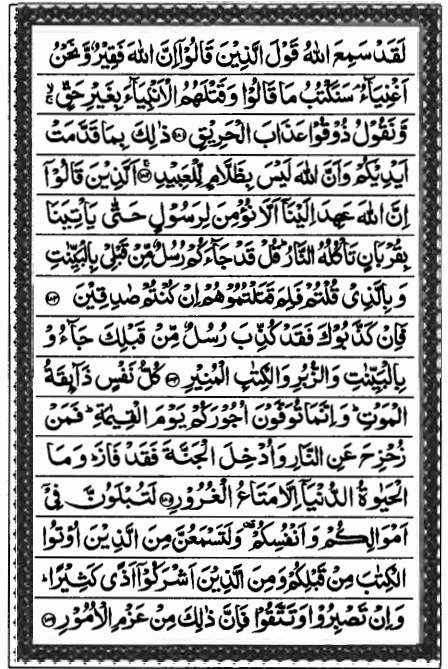 لَقَدۡ سَمِعَ اللّٰهُ قَوۡلَ الَّذِيۡنَ قَالُوۡۤا اِنَّ اللّٰهَ فَقِيۡرٌ وَّنَحۡنُ
اَغۡنِيَآءُ ۘ سَنَكۡتُبُ مَا قَالُوۡا وَقَتۡلَهُمُ الۡاَنۡۢبِيَآءَ بِغَيۡرِ حَقٍّ ۙ
وَّنَقُوۡلُ ذُوۡقُوۡا عَذَابَ الۡحَرِيۡقِ ﴿۱۸۱﴾ ذٰلِكَ بِمَا قَدَّمَتۡ
اَيۡدِيۡكُمۡ وَاَنَّ اللّٰهَ لَيۡسَ بِظَلَّامٍ لِّلۡعَبِيۡدِ ۚ﴿۱۸۲﴾ اَلَّذِيۡنَ قَالُوۡۤا
اِنَّ اللّٰهَ عَهِدَ اِلَيۡنَاۤ اَلَّا نُؤۡمِنَ لِرَسُوۡلٍ حَتّٰى يَاۡتِيَنَا
بِقُرۡبَانٍ تَاۡكُلُهُ النَّارُ ؕ قُلۡ قَدۡ جَآءَكُمۡ رُسُلٌ مِّنۡ قَبۡلِىۡ بِالۡبَيِّنٰتِ
وَبِالَّذِىۡ قُلۡتُمۡ فَلِمَ قَتَلۡتُمُوۡهُمۡ اِنۡ كُنۡتُمۡ صٰدِقِيۡنَ ﴿۱۸۳﴾
فَاِنۡ كَذَّبُوۡكَ فَقَدۡ كُذِّبَ رُسُلٌ مِّنۡ قَبۡلِكَ جَآءُوۡ
بِالۡبَيِّنٰتِ وَالزُّبُرِ وَالۡكِتٰبِ الۡمُنِيۡرِ ﴿۱۸۴﴾ كُلُّ نَفۡسٍ ذَآئِقَةُ
الۡمَوۡتِ ؕ وَاِنَّمَا تُوَفَّوۡنَ اُجُوۡرَكُمۡ يَوۡمَ الۡقِيٰمَةِ ؕ فَمَنۡ
زُحۡزِحَ عَنِ النَّارِ وَاُدۡخِلَ الۡجَنَّةَ فَقَدۡ فَازَ ؕ وَمَا
الۡحَيٰوةُ الدُّنۡيَاۤ اِلَّا مَتَاعُ الۡغُرُوۡرِ ﴿۱۸۵﴾ لَتُبۡلَوُنَّ فِىۡۤ
اَمۡوَالِكُمۡ وَاَنۡفُسِكُمۡ وَلَتَسۡمَعُنَّ مِنَ الَّذِيۡنَ اُوۡتُوا
الۡكِتٰبَ مِنۡ قَبۡلِكُمۡ وَمِنَ الَّذِيۡنَ اَشۡرَكُوۡۤا اَذًى كَثِيۡرًا ؕ
وَاِنۡ تَصۡبِرُوۡا وَتَتَّقُوۡا فَاِنَّ ذٰلِكَ مِنۡ عَزۡمِ الۡاُمُوۡرِ ﴿۱۸۶﴾